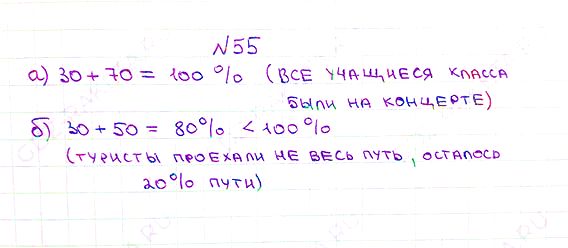 №55
а) 30 + 70 = 100 % (ВСЕ УЧАЩИЕСЯ КЛАССА
БЫЛИ НА КОНЦЕРТЕ)
б) 30 + 50 = 80% < 100 %
(ТУРИСТЫ ПРОЕХАЛИ НЕ ВЕСЬ ПУТЬ, ОСТАЛОСЬ
20% ПУТИ)